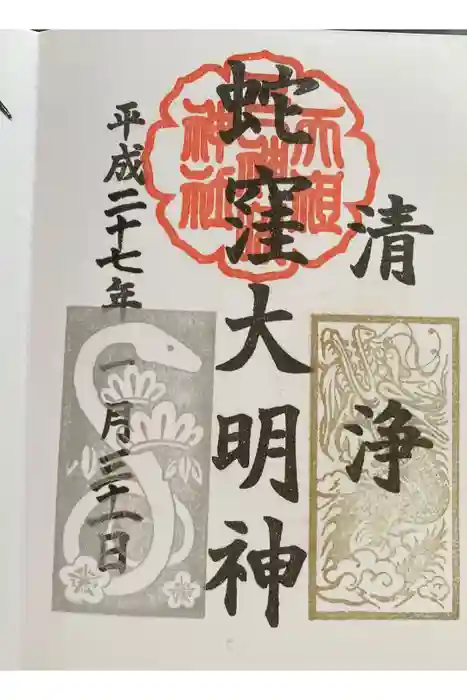 清浄
蛇窪大明神
平成二十七年一月三十一日
天祖
神社